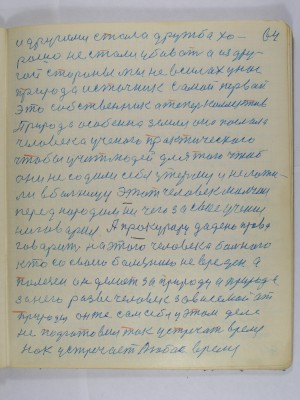 и другами стала дружба хо- 64
рошо не стали убивать а из дру-
гой стороны мы не всилах у нас
природа источник самой первай
это собственник а теперь коллектив
Природа особенно земли она послала
человека ученого практического
чтобы учить людей для того чтоб
они не сами себя у тюрьму и не ложи-
ли в больницу этот человек молчит
перед народом ни чего за свае учения
не говарил А прокурору дадено право
говарить на этого человека больного
кто со своею болезнию не вреден а
полезен он делает за природу и природа
за него разве человек зависемай от
природы он же сам себя у этом деле
не подготовил так устречать время
как устречает Любое время